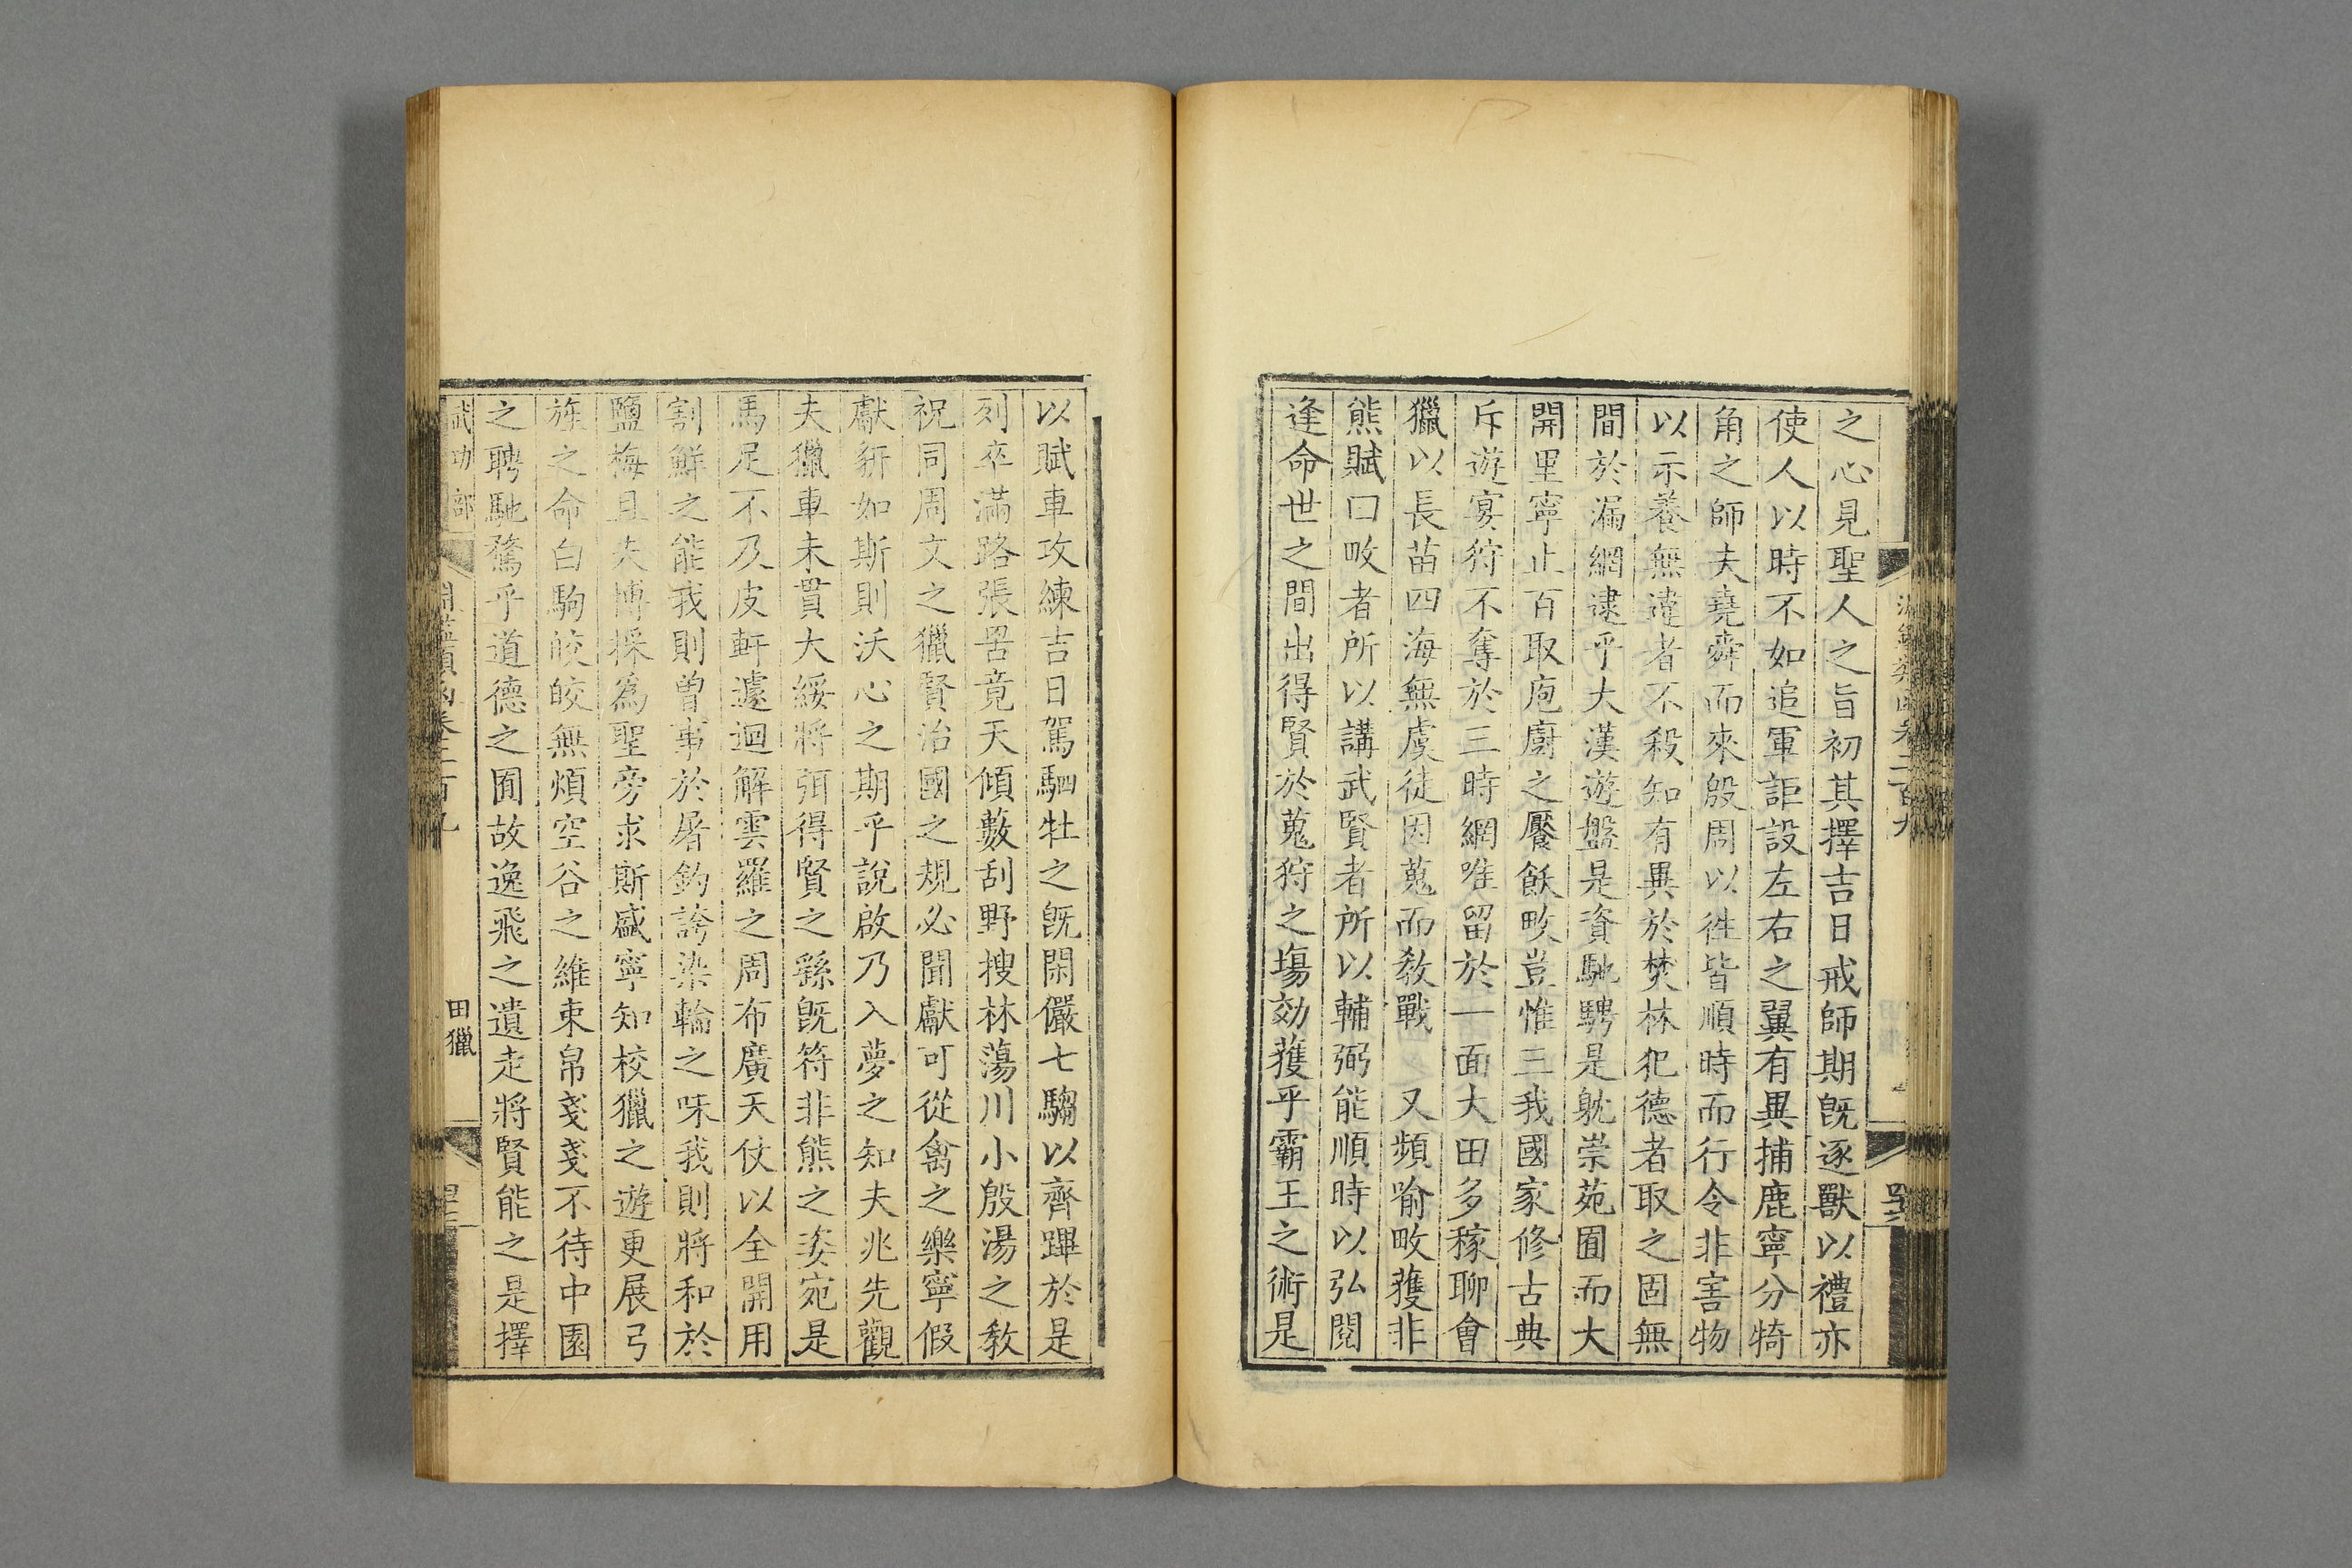 之心見聖人之旨初其擇吉日戒師期旣逐獸以禮亦
使人以時不如追軍詎設左右之翼有異捕鹿寧分犄
角之師夫堯舜而來殷周以徃皆順時而行令非害物
以示養無違者不殺知有異於焚林犯德者取之固無
間於漏網逮乎大漢遊盤是資馳騁是躭崇苑囿而大
開里寧止百取庖廚之饜飫畋豈惟三我國家修古典
斥遊宴狩不奪於三時網唯留於一面大田多稼聊會
獵以長苗四海無虞徒因蒐而敎戰 又頻喻畋獲非
熊賦曰畋者所以講武賢者所以輔弼能順時以弘閱
逢命世之間出得賢於蒐狩之塲効獲乎霸王之術是
以賦車攻練吉日駕駟牡之旣閑儼七騶以齊蹕於是
列卒滿路張罟竟天傾藪刮野搜林蕩川小殷湯之敎
祝同周文之獵賢治國之規必聞獻可從禽之樂寧假
獻豜如斯則沃心之期乎說啟乃入夢之知夫兆先觀
夫獵車未貫大綏將弭得賢之繇旣符非熊之姿宛是
馬足不及皮軒遽迴解雲羅之周布廣天仗以全開用
割鮮之能我則曾事於屠釣誇染輪之味我則將和於
鹽梅且夫博採為聖旁求斯感寧知校獵之遊更展弓
旌之命白駒皎皎無煩空谷之維束帛戔戔不待中園
之聘馳騖乎道德之囿故逸飛之遺走將賢能之是擇
武功部
田獵